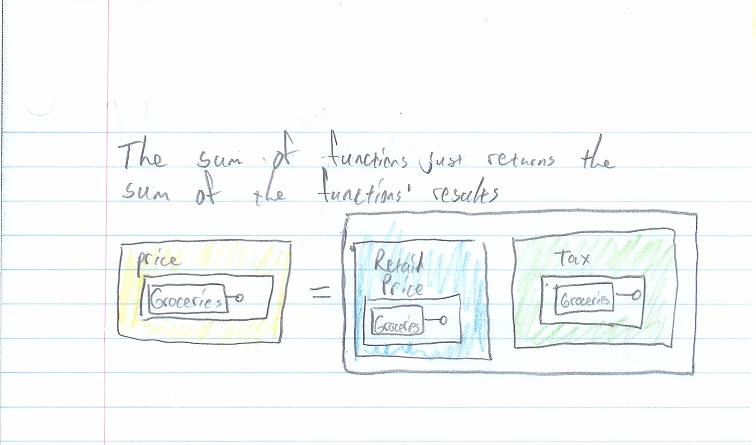 The sum of functions just returns the
sum of the functions' results
price
Groceries
=
Retail
Price
Groceries
Tax
Groceries